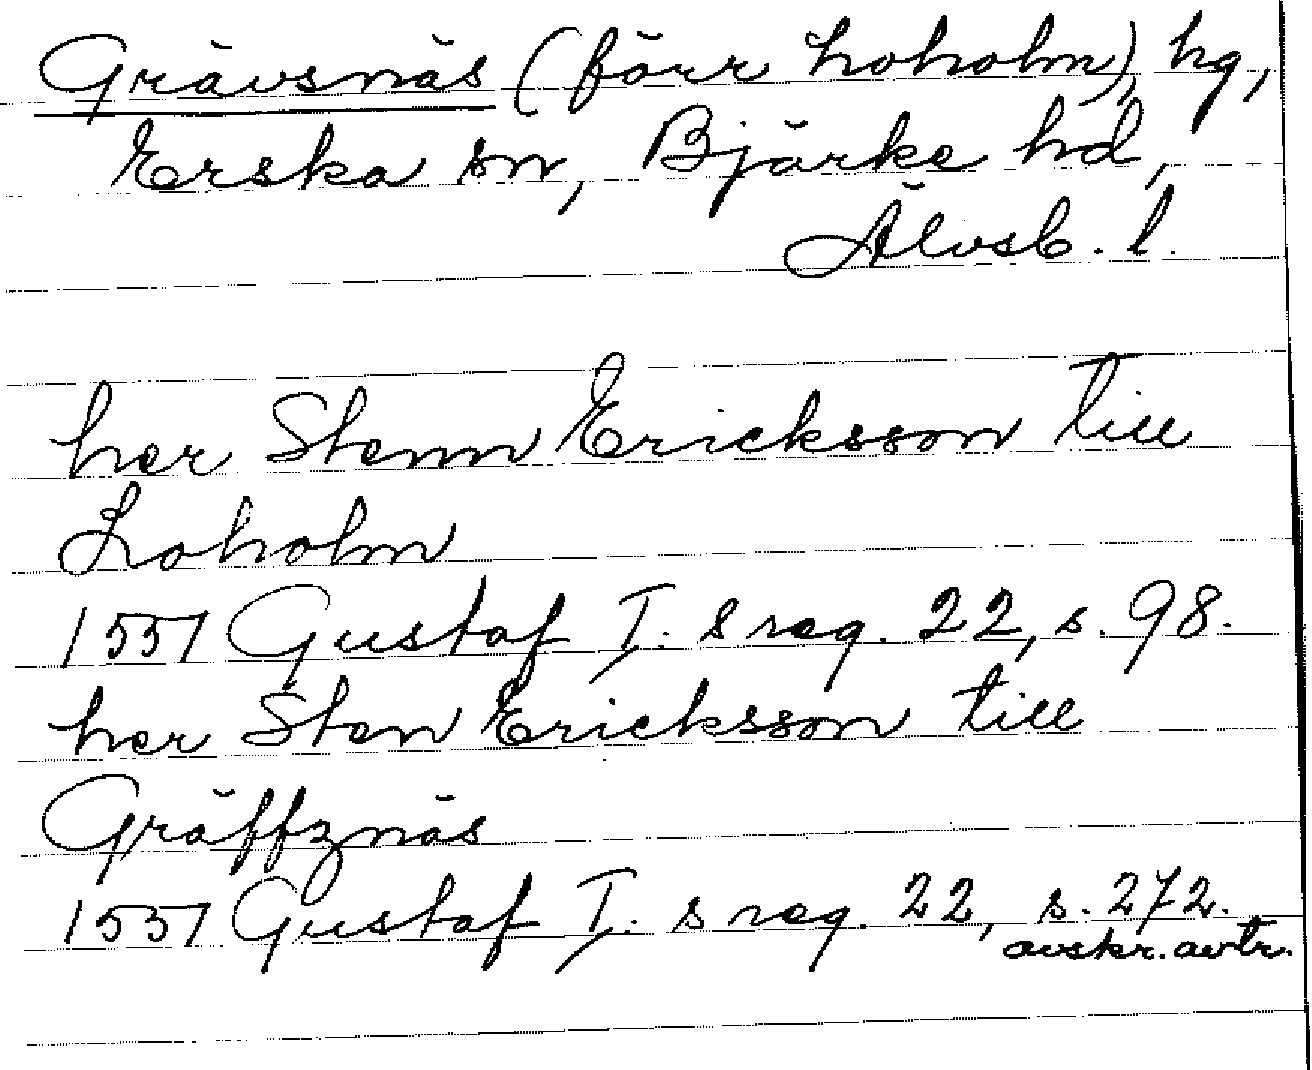 Grävsnäs (förr Loholm), hg,
Erska sn, Bjärke hd,
Älvsb. l.
her Stenn Ericksson till
Loholm
1551 Gustaf I. s reg. 22, s. 98.
her Sten Ericksson till
Gräffznäs
1551 Gustaf I. s reg. 22, s. 272.
avskr. avtr.